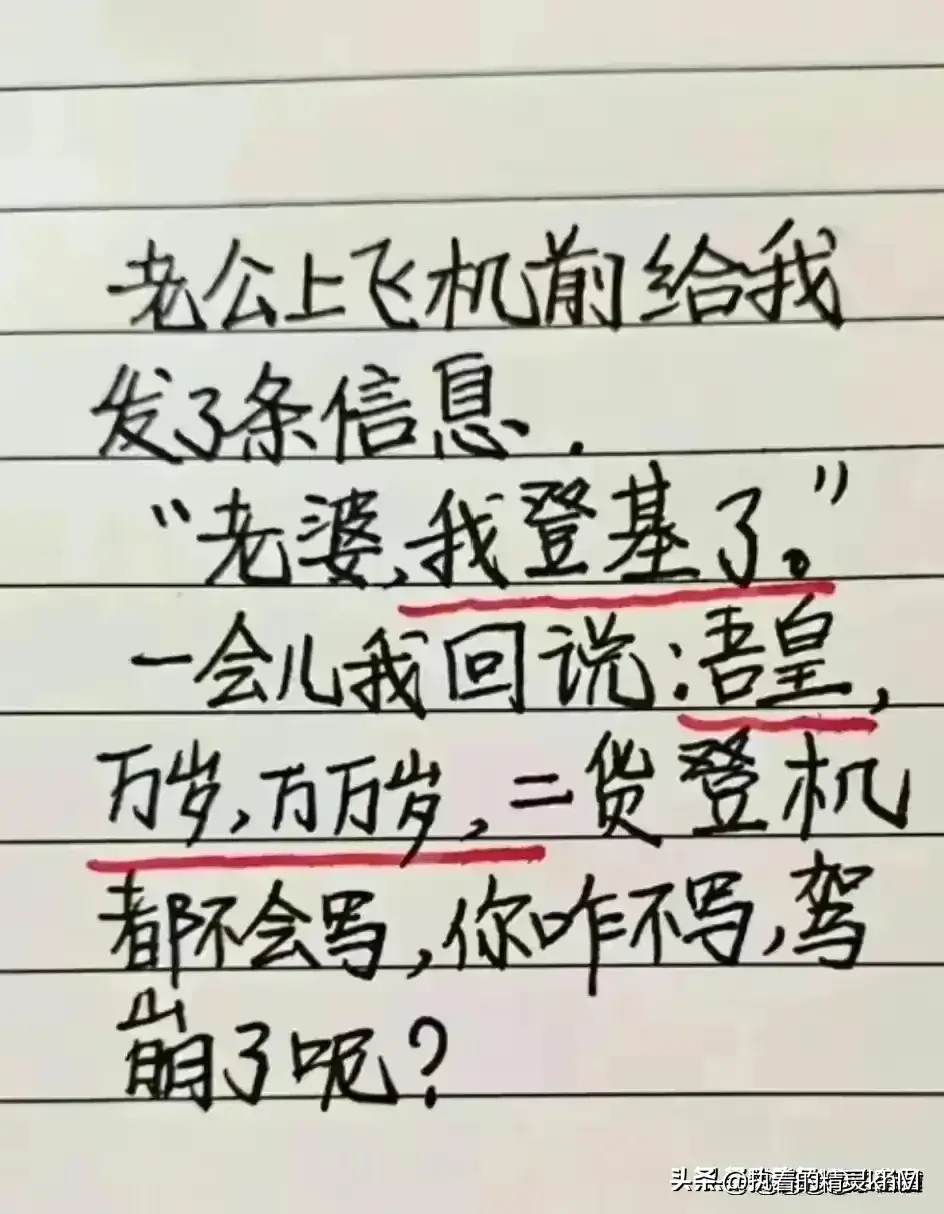 老公上飞机前给我
发了条信息.
“老婆,我登基了。”
一会儿我回说:吾皇,
万岁,万万岁,二货登机
都不会写,你咋不写,驾
崩了呢?
头条@执着的精灵